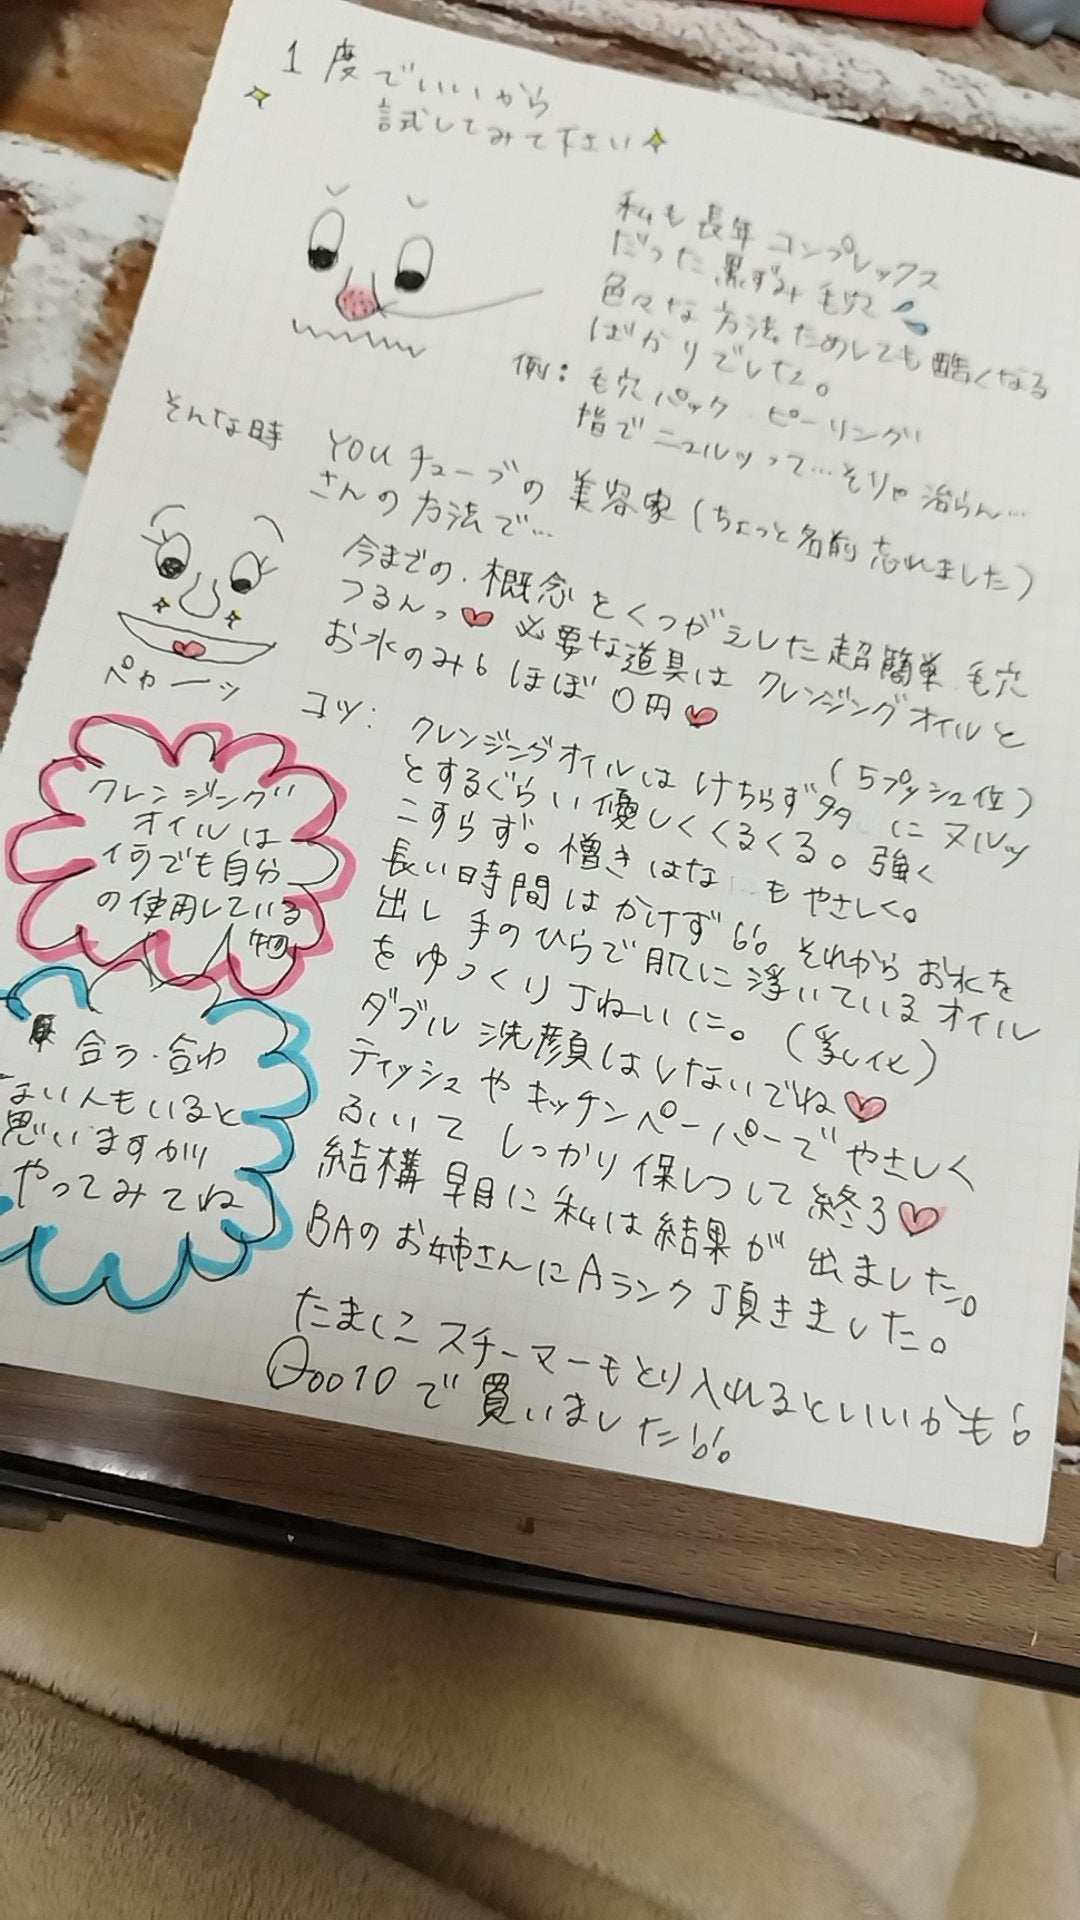 1度でいいから
試してみて下さい
私も長年コンプレックス
だった黒ずみ毛穴
色々な方法ためしても酷くなる
ばかりでした。
例:毛穴パック・ピーリング
指でニュルッって…そりゃ治らん…
そんな時
YOUチューブの美容家(ちょっと名前忘れました)
さんの方法で…
今までの.概念をくつがえした超簡単毛穴
つるんっ♥必要な道具はクレンジングオイルと
お水のみ!ほぼ0円♥
ペカーッ
コツ:クレンジングオイルはけちらず多 にヌルッ
(5プッシュ位)
とするぐらい優しくくるくる。強く
こすらず。憎きはな も やさしく。
長い時間はかけず!!。それからお水を
出し手のひらで肌に浮いているオイル
をゆっくり丁ねいに。(乳化)
ダブル洗顔はしないでね♥
ティッシュやキッチンペーパーでやさしく
ふいてしっかり保しつして終了♥
結構早目に私は結果が出ました。
BAのお姉さんにAランク頂きました。
たまにスチーマーもとり入れるといいかも!
Qoo10で買いました!!。
クレンジング
オイルは
何でも自分
の使用している
物
合う.合わ
ない人もいると
思いますが!
やってみてね